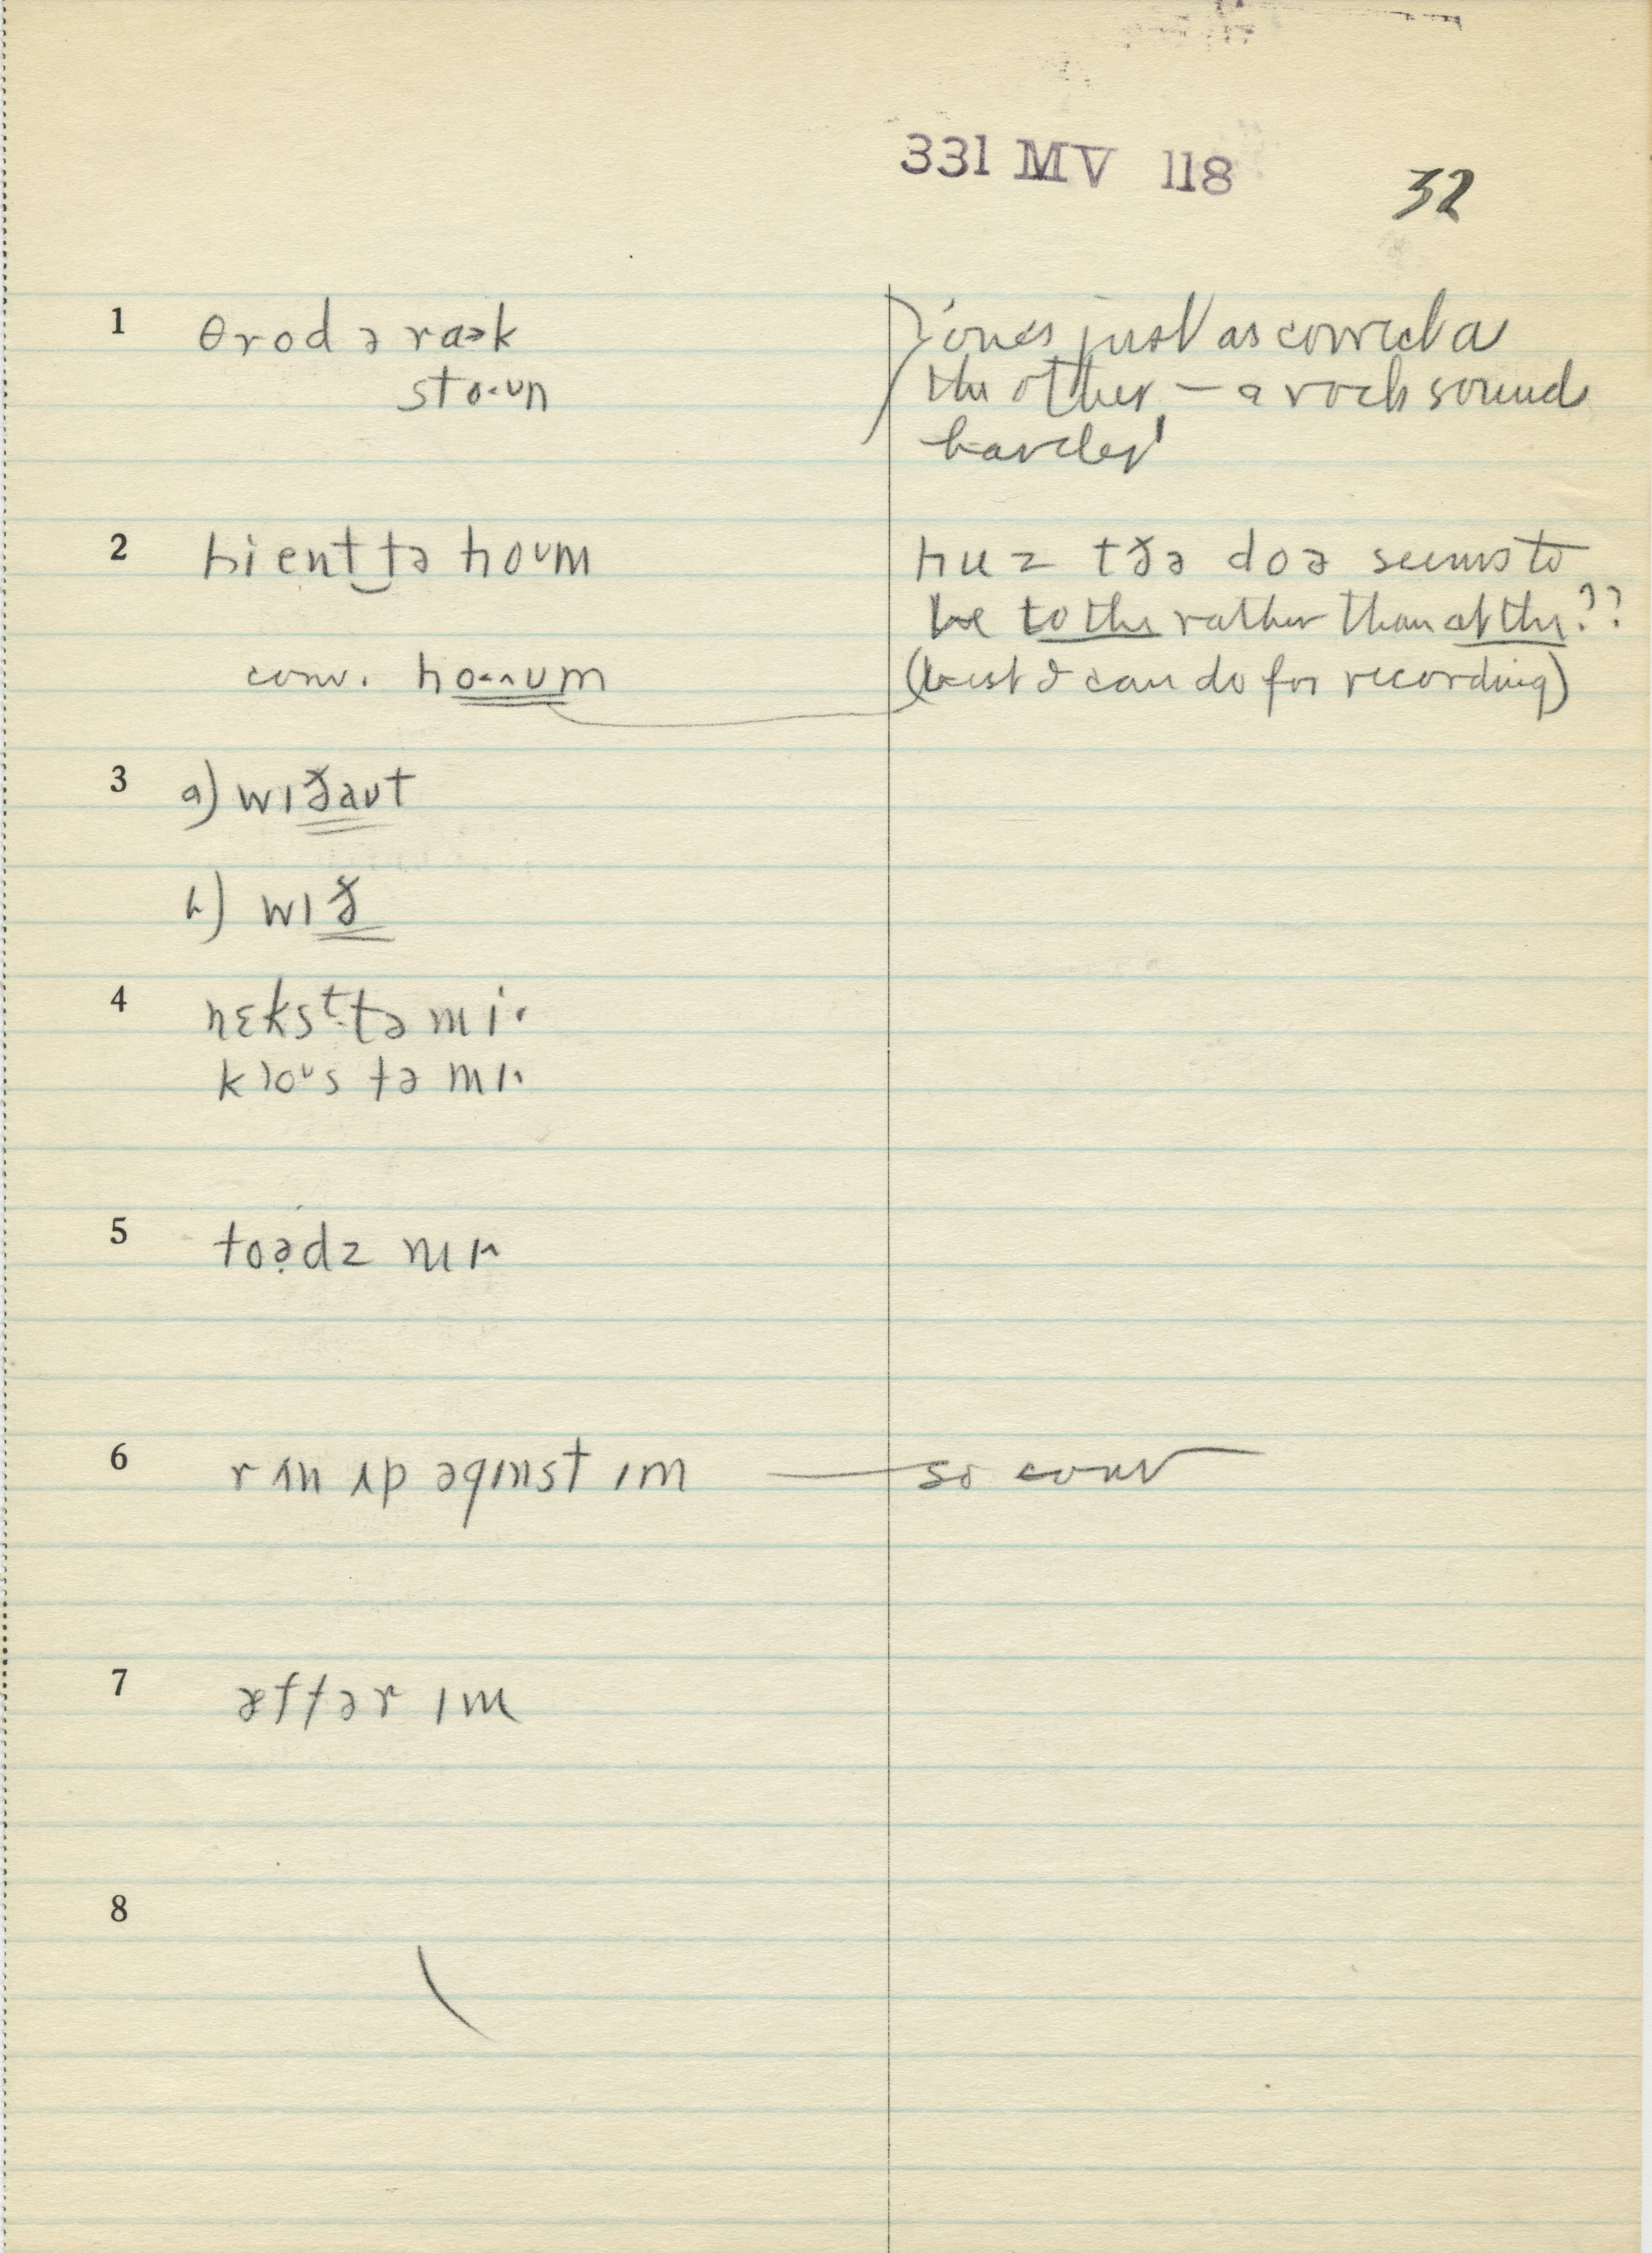 331 MV 118 32
1 θrod ə raək
sto·ʊn
'one's just as correct as
the other — a rock sounds
harder'
2 hi ent‿tə hoʊm
hu z tðə doə seems to
be to the rather than at the ??
conv. ho˞˄ʊm
(best I can do for recording)
3 a) wɪðaʊt
b) wɪð
4 nɛksᵗ tə mi·
kloᵘs tə mɪ˄
5 toə̣dz mɪ˄
6 rʌn ʌp əgɪnst ɪm — so conv
7 æftər ɪm
8